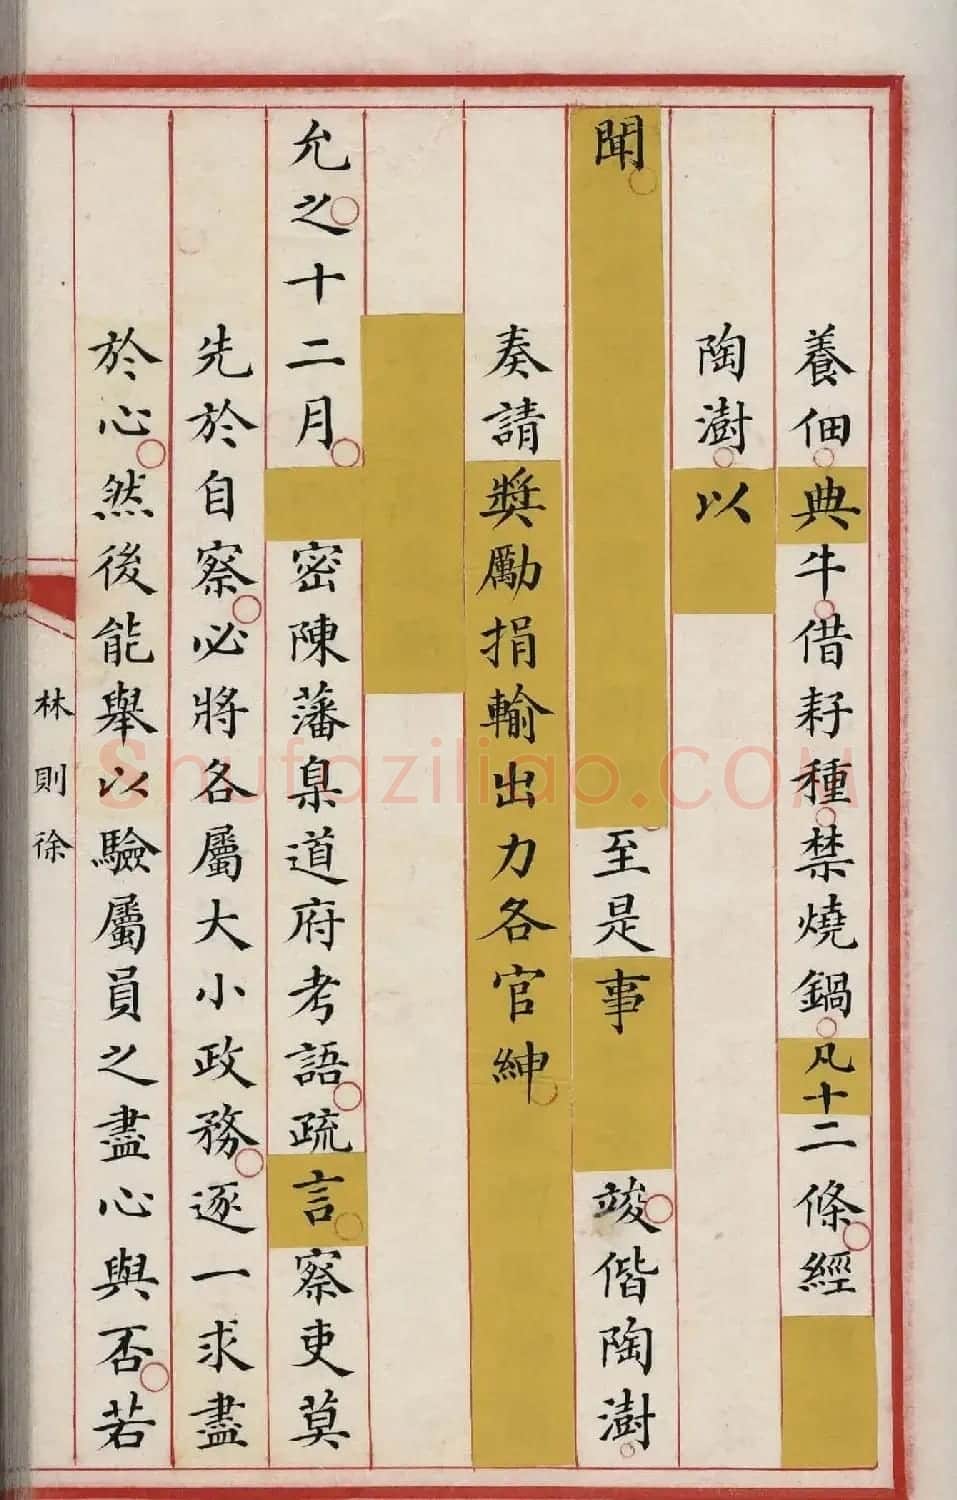 養佃典牛借耔種禁燒鍋凡十二條經
陶澍以
聞至是事竣偕陶澍
奏請獎勵捐輸出力各官紳
允之十二月密陳藩臬道府考語疏言察吏莫
先於自察必將各屬大小政務逐一求盡
於心然後能舉以驗屬員之盡心與否若
林則徐
shufaziliao.com